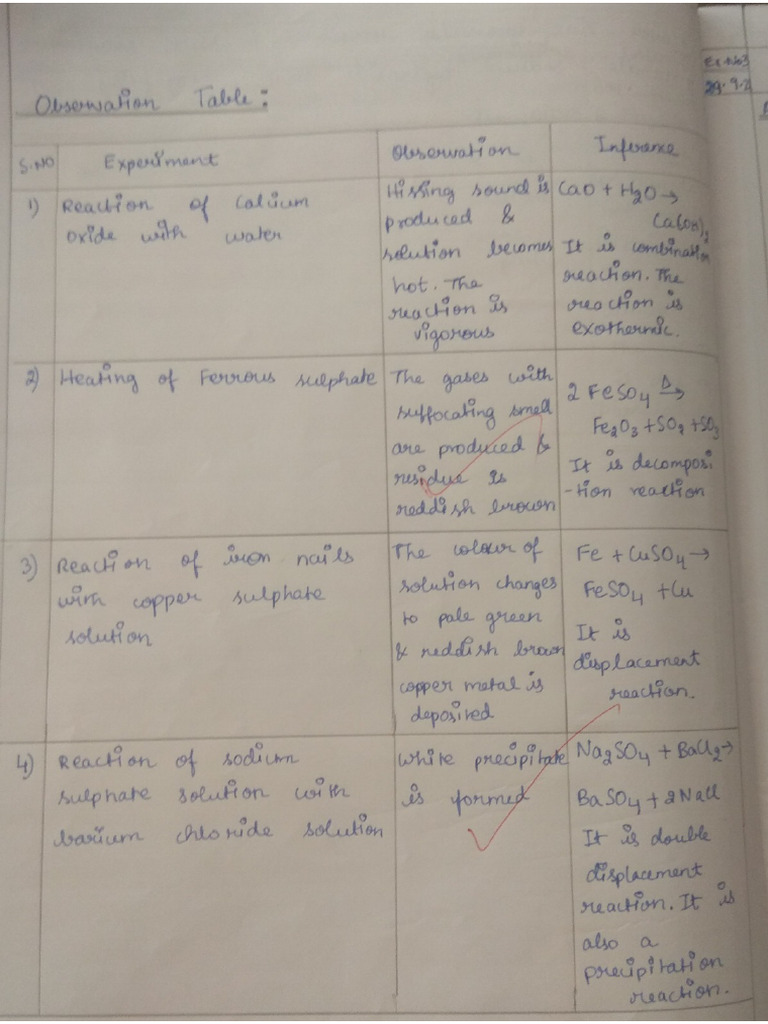 Ex.No3
29.9.2
Observation Table:
S.NO Experiment Observation Inference
1) Reaction of Calcium oxide with water
Hissing sound is
produced &
solution becomes
hot. The
reaction is
vigorous
CaO + H₂O →
Ca(OH)₂
It is combination
reaction. The
reaction is
exothermic.
2) Heating of Ferrous sulphate
The gases with
suffocating smell
are produced &
residue is
reddish brown
2 FeSO₄ Δ→
Fe₂O₃ + SO₂ + SO₃
It is decomposi
-tion reaction
3) Reaction of iron nails
with copper sulphate
solution
The colour of
solution changes
to pale green
& reddish brown
copper metal is
deposited
Fe + CuSO₄ →
FeSO₄ + Cu
It is
displacement
reaction.
4) Reaction of sodium
sulphate solution with
barium chloride solution
White precipitate
is formed
Na₂SO₄ + BaCl₂ →
BaSO₄ + 2NaCl
It is double
displacement
reaction. It is
also a
precipitation
reaction.